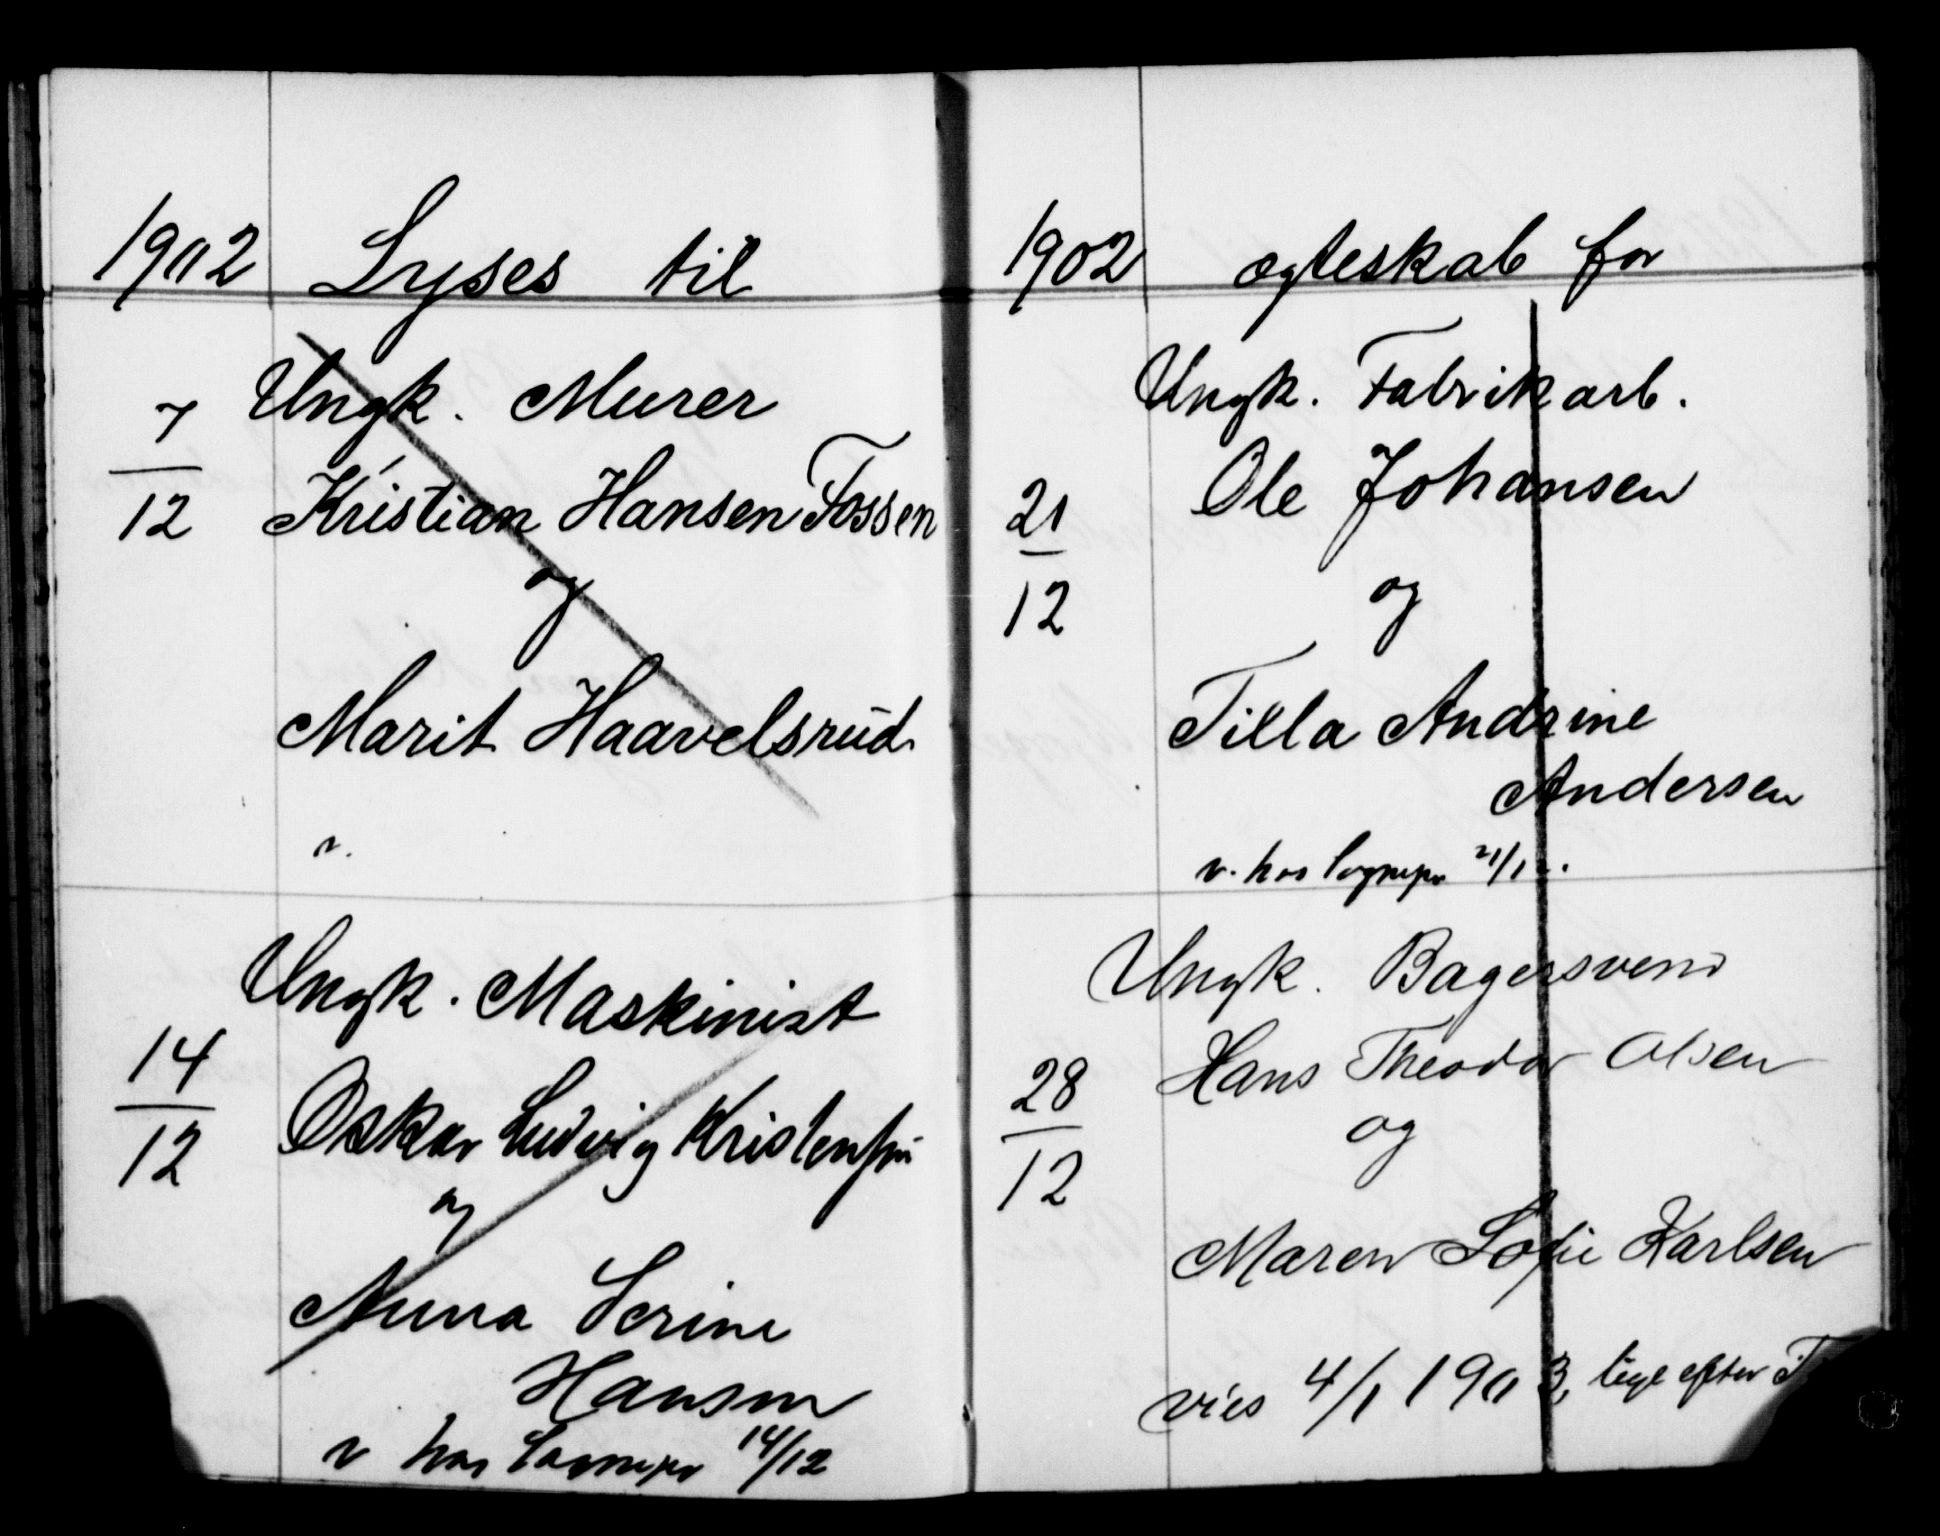 1902 Lyses til
Ungk. Murer
7
12
Kristian Hansen Fossen
og
Marit Haavelsrud
v.
Ungk. Maskinist
14
12
Oskar Ludvig Kristensen
og
Anna Serine
Hansen
v hos Sognepr 14/12
1902 ægteskab for
Ungk. Fabrikarb.
Ole Johansen
21
12
og
Tilla Andrine
Andersen
v. hos Sognepr 21/12.
Ungk. Bagersvend
Hans Theodor Olsen
28
12
og
Maren Sofie Karlsen
vies 4/1 1903, lige efter